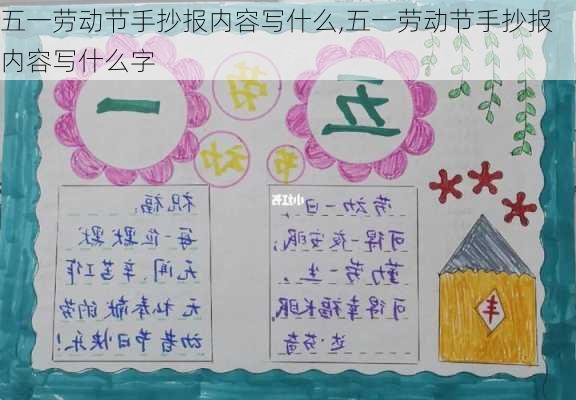 五一劳动节手抄报内容写什么,五一劳动节手抄报
内容写什么字
五一
小红书
劳动一日,
可得一夜安眠;
勤劳一生,
可得幸福长眠
达·芬奇
祝福:
每一位默默
无闻、辛苦工作
无私奉献的劳
动者节日快乐!
丰